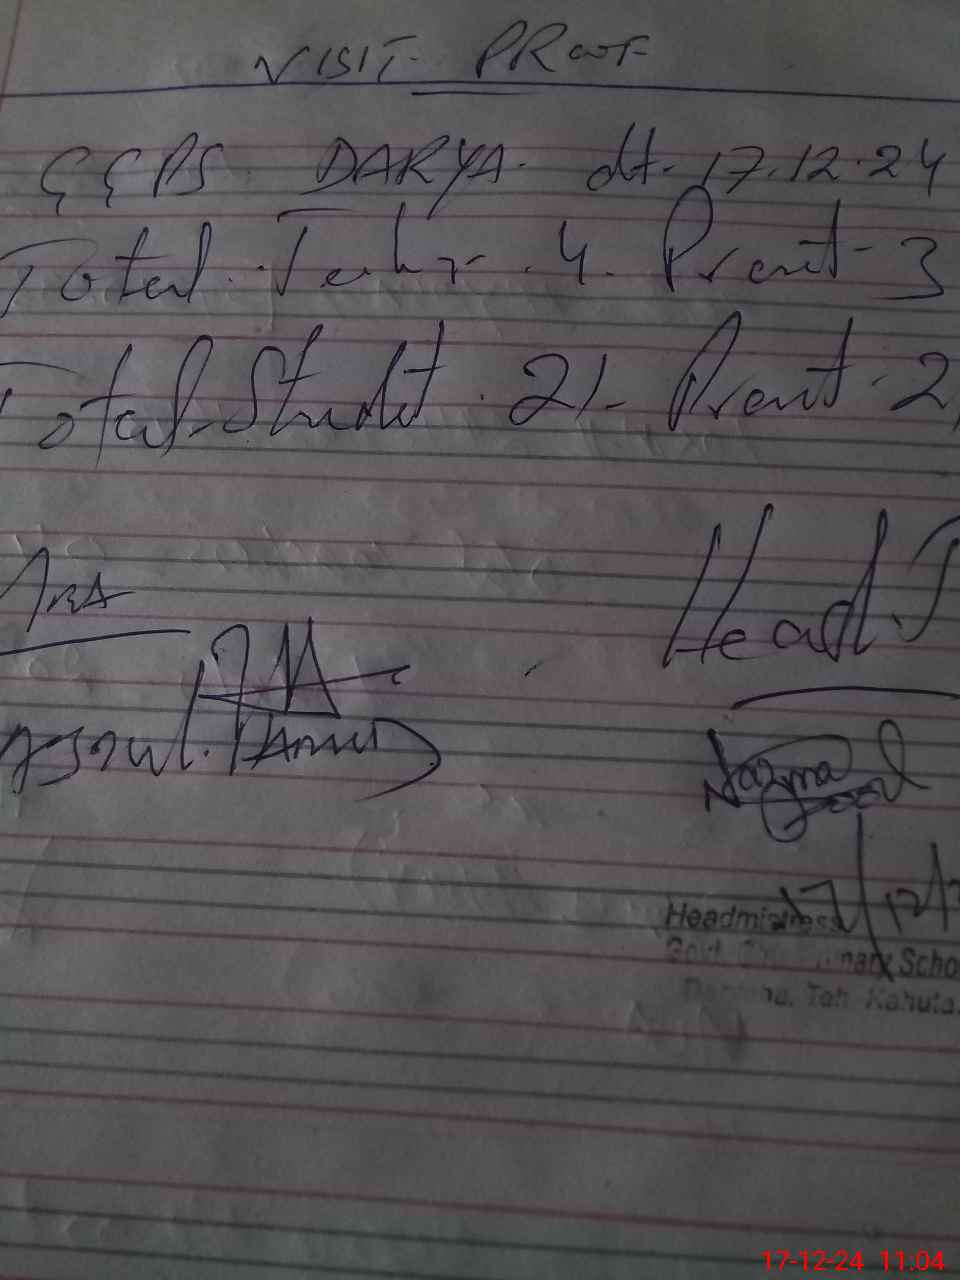 VISIT PROOF
GGPS DARYA. dt. 17.12.24
Total Teahr. 4. Prant-3
Total Studt. 21- Prant. 2
Head.T
Nazma
17/12/2
Headmistress
Govt. mary Scho
Teh Kahuta.
17-12-24 11:04